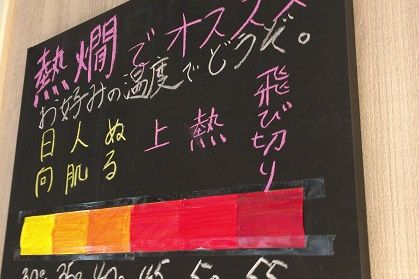 熱燗でオススメ
お好みの温度でどうぞ。
日向 人肌 ぬる 上 熱 飛び切り
30° 35° 40° 45 50 55